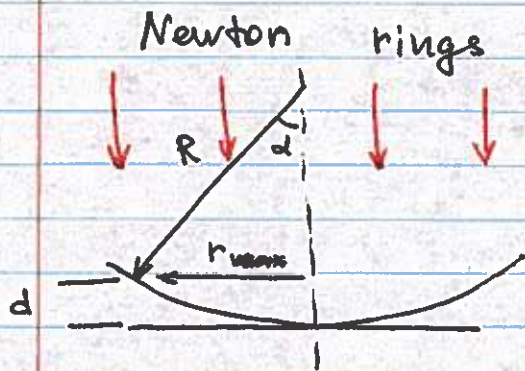 Newton rings
R α
r max
d